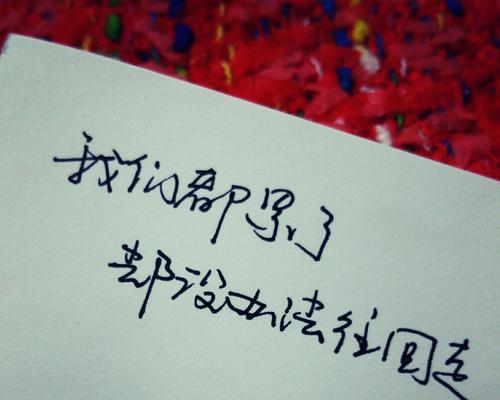 我们都累了
都没办法往回走